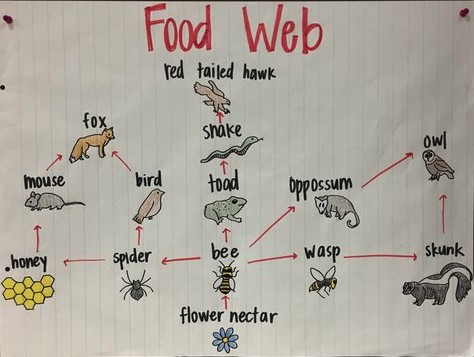 Food Web
red tailed hawk
fox
snake
owl
mouse
bird
toad
oppossum
.honey
spider
bee
wasp
skunk
flower nectar